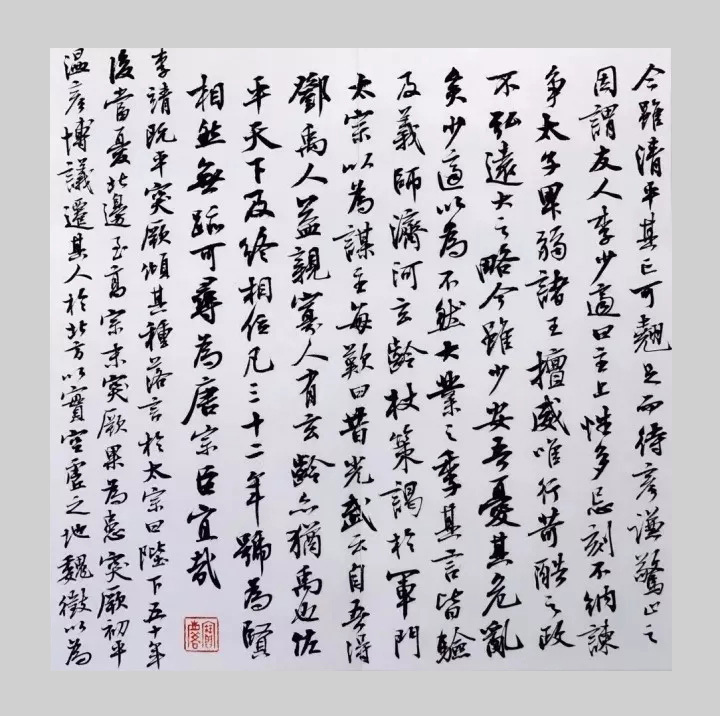 今雖清平其亡可翹足而待彥謙驚止之
因謂友人李少適曰主上性多忌刻不納諫
爭太子卑弱諸王擅威唯行苛酷之政
不弘遠大之略今雖少安吾憂其危亂
矣少適以為不然大業之季其言皆驗
及義師濟河玄齡杖策謁於軍門
太宗以為謀主每歎曰昔光武云自吾得
鄧禹人益親寡人有玄齡亦猶禹也佐
平天下及終相位凡三十二年號為賢
相然無跡可尋為唐宗臣宜哉
李靖既平突厥傾其種落言於太宗曰陛下五十年
後當憂北邊至高宗末突厥果為患突厥初平
温彥博議遷其人於北方以實空虛之地魏徵以為